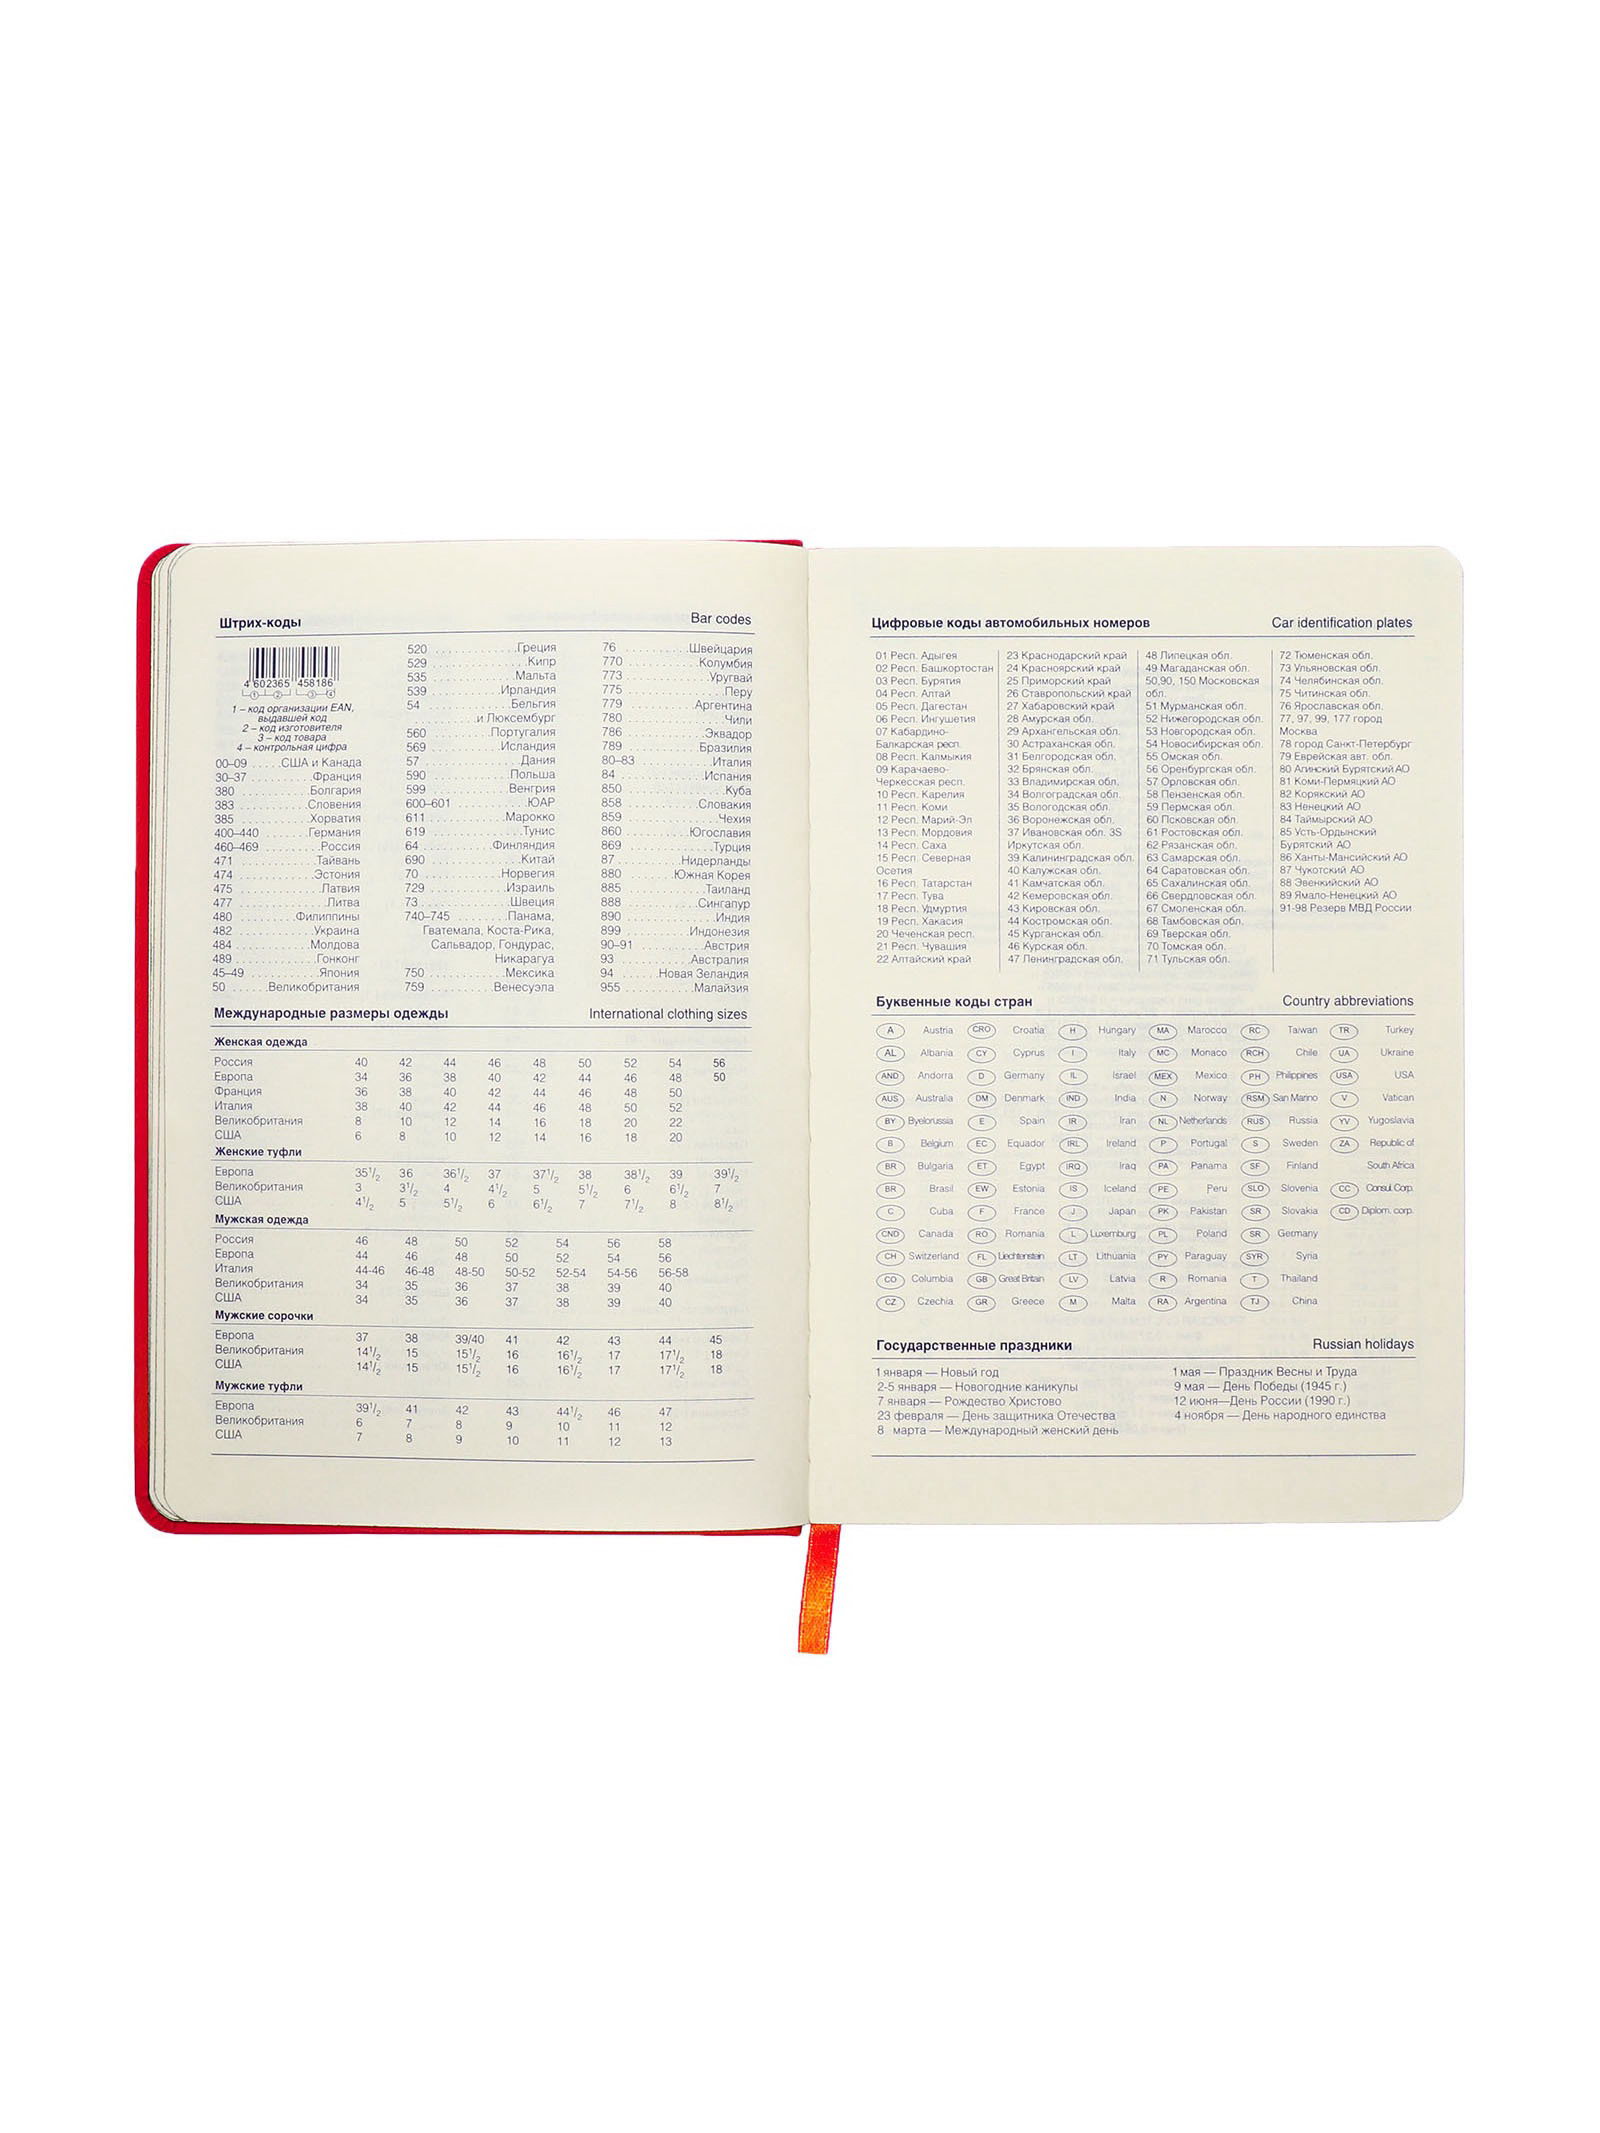 Штрих-коды Bar codes
4 602365 458186
1 2 3 4
1 – код организации EAN,
выдавшей код
2 – код изготовителя
3 – код товара
4 – контрольная цифра
00–09 .....США и Канада
30–37 ..........Франция
380 ...........Болгария
383 ..........Словения
385 ..........Хорватия
400–440 .......Германия
460–469 .........Россия
471 ............Тайвань
474 ............Эстония
475 .............Латвия
477 ..............Литва
480 .........Филиппины
482 ............Украина
484 ...........Молдова
489 ............Гонконг
45–49 ..........Япония
50 .....Великобритания
520 ............Греция
529 ..............Кипр
535 .............Мальта
539 ..........Ирландия
54 ............Бельгия
.........и Люксембург
560 .........Португалия
569 ..........Исландия
57 ..............Дания
590 ............Польша
599 ...........Венгрия
600–601 ..........ЮАР
611 ...........Марокко
619 .............Тунис
64 ..........Финляндия
690 .............Китай
70 ...........Норвегия
729 ...........Израиль
73 ............Швеция
740–745 .......Панама,
Гватемала, Коста-Рика,
Сальвадор, Гондурас,
Никарагуа
750 ...........Мексика
759 .........Венесуэла
76 .........Швейцария
770 ..........Колумбия
773 ...........Уругвай
775 ..............Перу
779 .........Аргентина
780 ..............Чили
786 ...........Эквадор
789 ..........Бразилия
80–83 ..........Италия
84 ............Испания
850 ..............Куба
858 ..........Словакия
859 .............Чехия
860 .........Югославия
869 ............Турция
87 .........Нидерланды
880 .......Южная Корея
885 ...........Таиланд
888 ..........Сингапур
890 .............Индия
899 .........Индонезия
90–91 .........Австрия
93 ..........Австралия
94 .....Новая Зеландия
955 ..........Малайзия
Международные размеры одежды International clothing sizes
Женская одежда
Россия 40 42 44 46 48 50 52 54 56
Европа 34 36 38 40 42 44 46 48 50
Франция 36 38 40 42 44 46 48 50
Италия 38 40 42 44 46 48 50 52
Великобритания 8 10 12 14 16 18 20 22
США 6 8 10 12 14 16 18 20
Женские туфли
Европа 35 1/2 36 36 1/2 37 37 1/2 38 38 1/2 39 39 1/2
Великобритания 3 3 1/2 4 4 1/2 5 5 1/2 6 6 1/2 7
США 4 1/2 5 5 1/2 6 6 1/2 7 7 1/2 8 8 1/2
Мужская одежда
Россия 46 48 50 52 54 56 58
Европа 44 46 48 50 52 54 56
Италия 44-46 46-48 48-50 50-52 52-54 54-56 56-58
Великобритания 34 35 36 37 38 39 40
США 34 35 36 37 38 39 40
Мужские сорочки
Европа 37 38 39/40 41 42 43 44 45
Великобритания 14 1/2 15 15 1/2 16 16 1/2 17 17 1/2 18
США 14 1/2 15 15 1/2 16 16 1/2 17 17 1/2 18
Мужские туфли
Европа 39 1/2 41 42 43 44 1/2 46 47
Великобритания 6 7 8 9 10 11 12
США 7 8 9 10 11 12 13
Цифровые коды автомобильных номеров Car identification plates
01 Респ. Адыгея
02 Респ. Башкортостан
03 Респ. Бурятия
04 Респ. Алтай
05 Респ. Дагестан
06 Респ. Ингушетия
07 Кабардино-
Балкарская респ.
08 Респ. Калмыкия
09 Карачаево-
Черкесская респ.
10 Респ. Карелия
11 Респ. Коми
12 Респ. Марий-Эл
13 Респ. Мордовия
14 Респ. Саха
15 Респ. Северная
Осетия
16 Респ. Татарстан
17 Респ. Тува
18 Респ. Удмуртия
19 Респ. Хакасия
20 Чеченская респ.
21 Респ. Чувашия
22 Алтайский край
23 Краснодарский край
24 Красноярский край
25 Приморский край
26 Ставропольский край
27 Хабаровский край
28 Амурская обл.
29 Архангельская обл.
30 Астраханская обл.
31 Белгородская обл.
32 Брянская обл.
33 Владимирская обл.
34 Волгоградская обл.
35 Вологодская обл.
36 Воронежская обл.
37 Ивановская обл. 3S
Иркутская обл.
39 Калининградская обл.
40 Калужская обл.
41 Камчатская обл.
42 Кемеровская обл.
43 Кировская обл.
44 Костромская обл.
45 Курганская обл.
46 Курская обл.
47 Ленинградская обл.
48 Липецкая обл.
49 Магаданская обл.
50,90, 150 Московская
обл.
51 Мурманская обл.
52 Нижегородская обл.
53 Новгородская обл.
54 Новосибирская обл.
55 Омская обл.
56 Оренбургская обл.
57 Орловская обл.
58 Пензенская обл.
59 Пермская обл.
60 Псковская обл.
61 Ростовская обл.
62 Рязанская обл.
63 Самарская обл.
64 Саратовская обл.
65 Сахалинская обл.
66 Свердловская обл.
67 Смоленская обл.
68 Тамбовская обл.
69 Тверская обл.
70 Томская обл.
71 Тульская обл.
72 Тюменская обл.
73 Ульяновская обл.
74 Челябинская обл.
75 Читинская обл.
76 Ярославская обл.
77, 97, 99, 177 город
Москва
78 город Санкт-Петербург
79 Еврейская авт. обл.
80 Агинский Бурятский АО
81 Коми-Пермяцкий АО
82 Корякский АО
83 Ненецкий АО
84 Таймырский АО
85 Усть-Ордынский
Бурятский АО
86 Ханты-Мансийский АО
87 Чукотский АО
88 Эвенкийский АО
89 Ямало-Ненецкий АО
91-98 Резерв МВД России
Буквенные коды стран Country abbreviations
A Austria CRO Croatia H Hungary MA Marocco RC Taiwan TR Turkey
AL Albania CY Cyprus I Italy MC Monaco RCH Chile UA Ukraine
AND Andorra D Germany IL Israel MEX Mexico PH Philippines USA USA
AUS Australia DM Denmark IND India N Norway RSM San Marino V Vatican
BY Byelorussia E Spain IR Iran NL Netherlands RUS Russia YV Yugoslavia
B Belgium EC Equador IRL Ireland P Portugal S Sweden ZA Republic of
BR Bulgaria ET Egypt IRQ Iraq PA Panama SF Finland South Africa
BR Brasil EW Estonia IS Iceland PE Peru SLO Slovenia CC Consul. Corp.
C Cuba F France J Japan PK Pakistan SR Slovakia CD Diplom. corp.
CND Canada RO Romania L Luxemburg PL Poland SR Germany
CH Switzerland FL Liechtenstein LT Lithuania PY Paraguay SYR Syria
CO Columbia GB Great Britain LV Latvia R Romania T Thailand
CZ Czechia GR Greece M Malta RA Argentina TJ China
Государственные праздники Russian holidays
1 января — Новый год
2-5 января — Новогодние каникулы
7 января — Рождество Христово
23 февраля — День защитника Отечества
8 марта — Международный женский день
1 мая — Праздник Весны и Труда
9 мая — День Победы (1945 г.)
12 июня—День России (1990 г.)
4 ноября — День народного единства